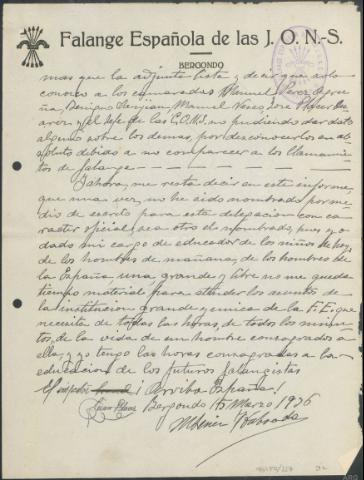 Falange Española de las J. O. N.-S.
BERGONDO
mas que la adjunta lista y decir que solo
conozco a los camaradas Manuel Perez
Benigno Manuel Veres, Jose Perez
y el Jefe de las C.O.N.S. no pudiendo dar dato
alguno sobre los demas, por desconocerlos en ab-
soluto debido a no comparecer a los llamamien-
tos de Falange
Y ahora, me resta decir en este informe,
que una vez, no he sido nombrado por me-
dio de escrito para esta delegacion con ca-
racter oficial, sea otro el nombrado, pues yo
dado mi cargo de educador de los niños de hoy,
de los hombres de mañana, de los hombres de
la España una grande y libre no me queda
tiempo material para atender los asuntos de
la institucion grande y unica de la F.E. que
necesita de todas las horas, de todos los minu-
tos, de la vida de un hombre consagrados a
ella, y yo tengo las horas consagradas a la
educacion de los futuros falangistas
¡Arriba España!
Bergondo 15 Marzo 1936